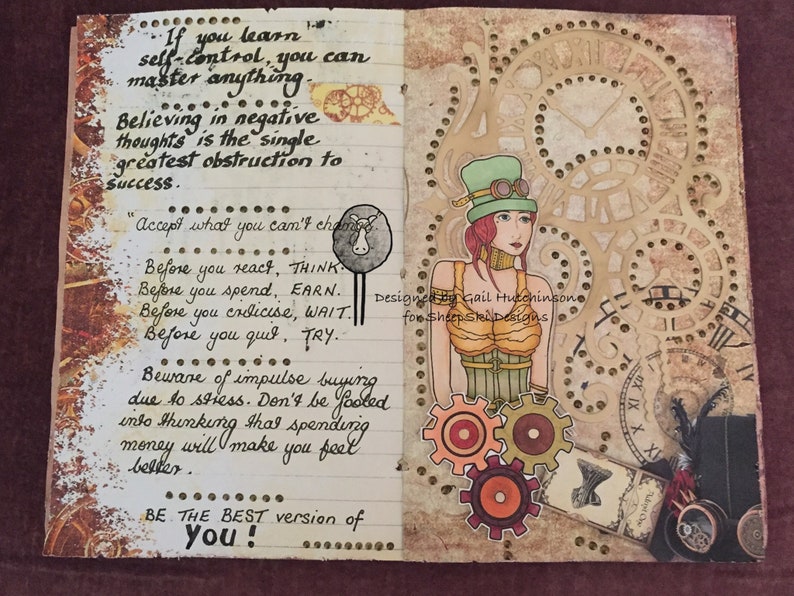 If you learn
self-control, you can
master anything.
Believing in negative
thoughts is the single
greatest obstruction to
success.
"Accept what you can't change.
Before you react, THINK.
Before you spend, EARN.
Before you criticise, WAIT.
Before you quit, TRY.
Beware of impulse buying
due to stress. Don't be fooled
into thinking that spending
money will make you feel
better.
BE THE BEST version of
You!
Designed by Gail Hutchinson
for SheepSki Designs